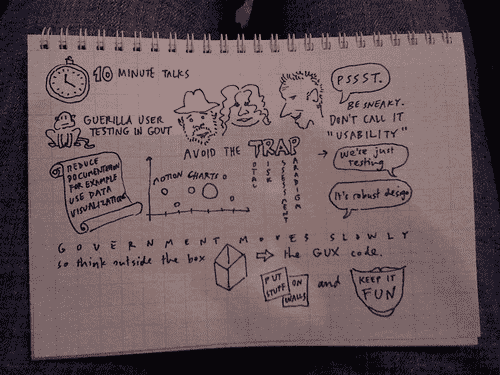 10 MINUTE TALKS
GUERILLA USER
TESTING IN GOVT
PSSST.
BE SNEAKY.
DON'T CALL IT
"USABILITY"
AVOID THE TRAP
TOTAL
RISK
ASSESSMENT
PARADIGM
We're just
testing
It's robust design
REDUCE
DOCUMENTATION
FOR EXAMPLE
USE DATA
VISUALIZATION
MOTION CHARTS
GOVERNMENT MOVES SLOWLY
so think outside the box
the GUX code.
PUT
STUFF
ON
WALLS
and
KEEP IT
FUN